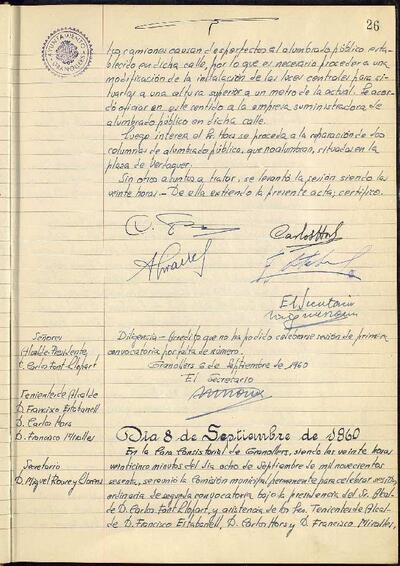 26
AYUNTAMIENTO
los camiones causan desperfectos al alumbrado público esta-
blecido en dicha calle, por lo que es necesario proceder a una
modificación de la instalación de las luces centrales para si-
tuarlas a una altura superior a un metro de la actual. Se acor-
dó oficiar en este sentido a la empresa suministradora de
alumbrado público en dicha calle.
Luego interesa el Sr. Hors se proceda a la reparación de dos
columnas de alumbrado público, que no alumbran, situadas en la
plaza de Verdaguer.
Sin otros asuntos a tratar, se levantó la sesión siendo las
veinte horas.- De ella extiendo la presente acta; certifico.
Carlos Hors
El Secretario
Diligencia.- Acredito que no ha podido celebrarse sesión de primera
convocatoria por falta de número.
Granollers 6 de Septiembre de 1960
El Secretario
Señores
Alcalde-Presidente,
C. Carlos Font Llopart
Tenientes de Alcalde
D. Francisco Estabanell
D. Carlos Hors
D. Francisco Miralles
Secretario
D. Miguel Roure y Llorens
Día 8 de Septiembre de 1960
En la Casa Consistorial de Granollers, siendo las veinte horas
veinticinco minutos del día ocho de Septiembre de mil novecientos
sesenta, se reunió la Comisión municipal permanente para celebrar sesión
ordinaria de segunda convocatoria bajo la presidencia del Sr. Alcal-
de D. Carlos Font Llopart, y asistencia de los Sres. Tenientes de Alcal-
de D. Francisco Estabanell, D. Carlos Hors y D. Francisco Miralles,